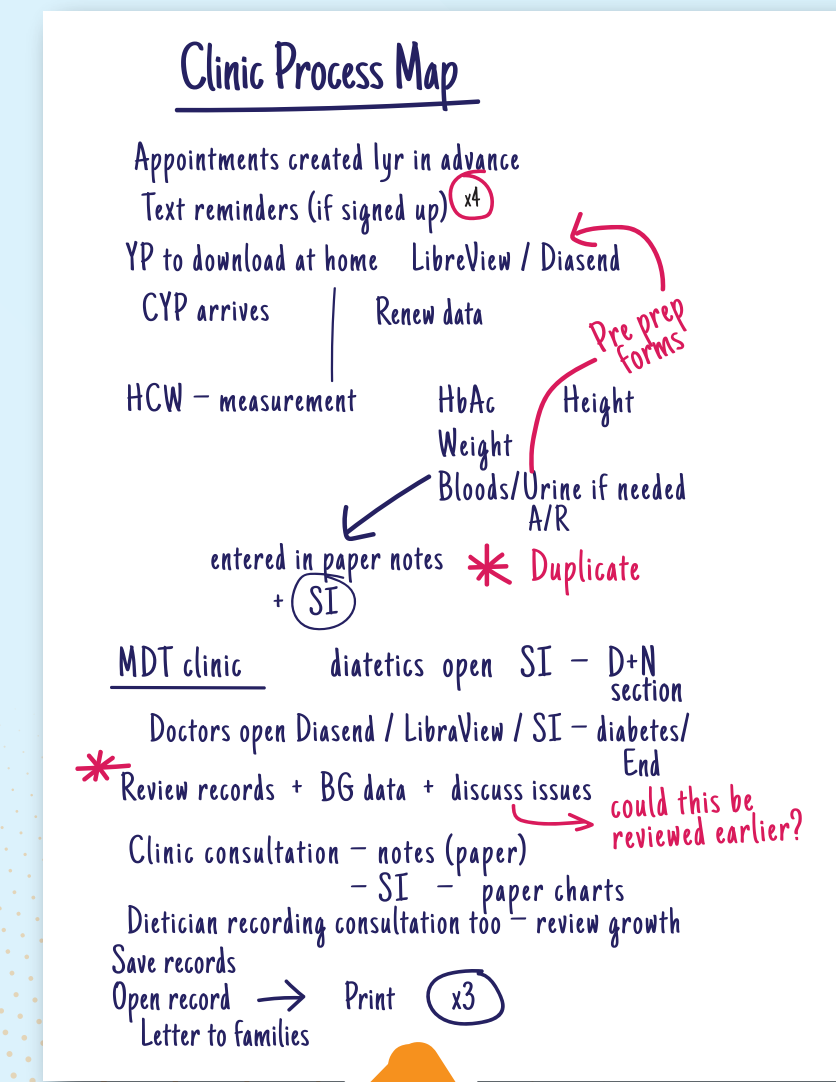 Clinic Process Map
Appointments created 1yr in advance
Text reminders (if signed up) x4
YP to download at home LibreView / Diasend
CYP arrives Renew data
Pre prep
forms
HCW – measurement HbAc Height
Weight
Bloods/Urine if needed
A/R
entered in paper notes * Duplicate
+ SI
MDT clinic diatetics open SI – D+N
section
Doctors open Diasend / LibraView / SI – diabetes/
End
* Review records + BG data + discuss issues
could this be
reviewed earlier?
Clinic consultation – notes (paper)
– SI – paper charts
Dietician recording consultation too – review growth
Save records
Open record → Print x3
Letter to families